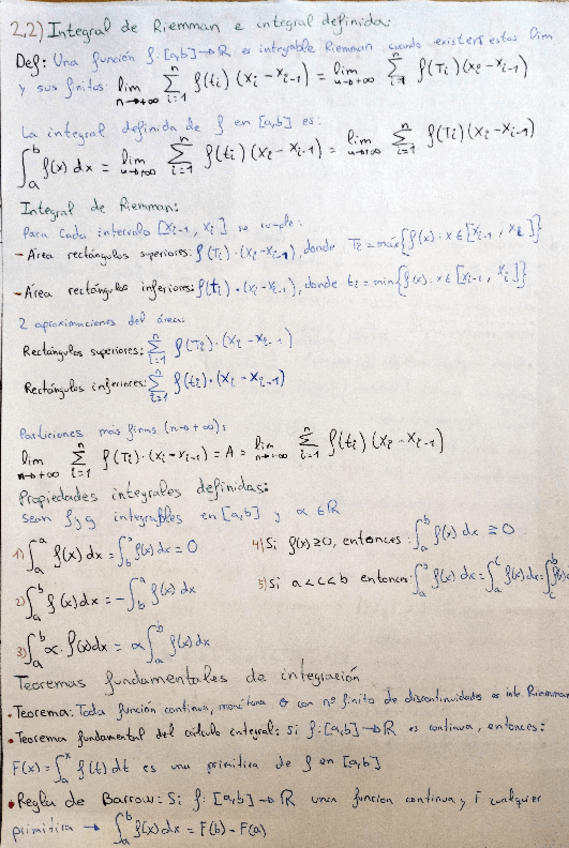 2.2) Integral de Riemman e integral definida:
Def: Una función f: [a,b]→R es integrable Riemman cuando existen estos lim
y sus finitos: lim n→+∞ ∑ i=1 n f(ti) (xi - xi-1) = lim n→+∞ ∑ i=1 n f(Ti) (xi - xi-1)
La integral definida de f en [a,b] es:
∫ a b f(x) dx = lim n→+∞ ∑ i=1 n f(ti) (xi - xi-1) = lim n→+∞ ∑ i=1 n f(Ti) (xi - xi-1)
Integral de Riemman:
Para cada intervalo [xi-1, xi] se cumple:
- Área rectángulos superiores: f(Ti) · (xi - xi-1), donde Ti = máx{f(x) : x ∈ [xi-1, xi]}
- Área rectángulos inferiores: f(ti) · (xi - xi-1), donde ti = min{f(x) : x ∈ [xi-1, xi]}
2 aproximaciones del área:
Rectángulos superiores: ∑ i=1 n f(Ti) · (xi - xi-1)
Rectángulos inferiores: ∑ i=1 n f(ti) · (xi - xi-1)
Particiones más finas (n→+∞):
lim n→+∞ ∑ i=1 n f(Ti) · (xi - xi-1) = A = lim n→+∞ ∑ i=1 n f(ti) (xi - xi-1)
Propiedades integrales definidas:
Sean f y g integrables en [a,b] y α ∈ R
1) ∫ a a f(x) dx = ∫ b b f(x) dx = 0
2) ∫ a b f(x) dx = - ∫ b a f(x) dx
3) ∫ a b α · f(x) dx = α ∫ a b f(x) dx
4) Si f(x) ≥ 0, entonces: ∫ a b f(x) dx ≥ 0
5) Si a < c < b entonces: ∫ a b f(x) dx = ∫ a c f(x) dx = ∫ c b f(x)
Teoremas fundamentales de integración
• Teorema: Toda función continua, monótona o con nº finito de discontinuidades es int. Riemman
• Teorema fundamental del cálculo integral: Si f: [a,b] → R es continua, entonces:
F(x) = ∫ a x f(t) dt es una primitiva de f en [a,b]
• Regla de Barrow: Si f: [a,b] → R una función continua y F cualquier
primitiva → ∫ a b f(x) dx = F(b) - F(a)